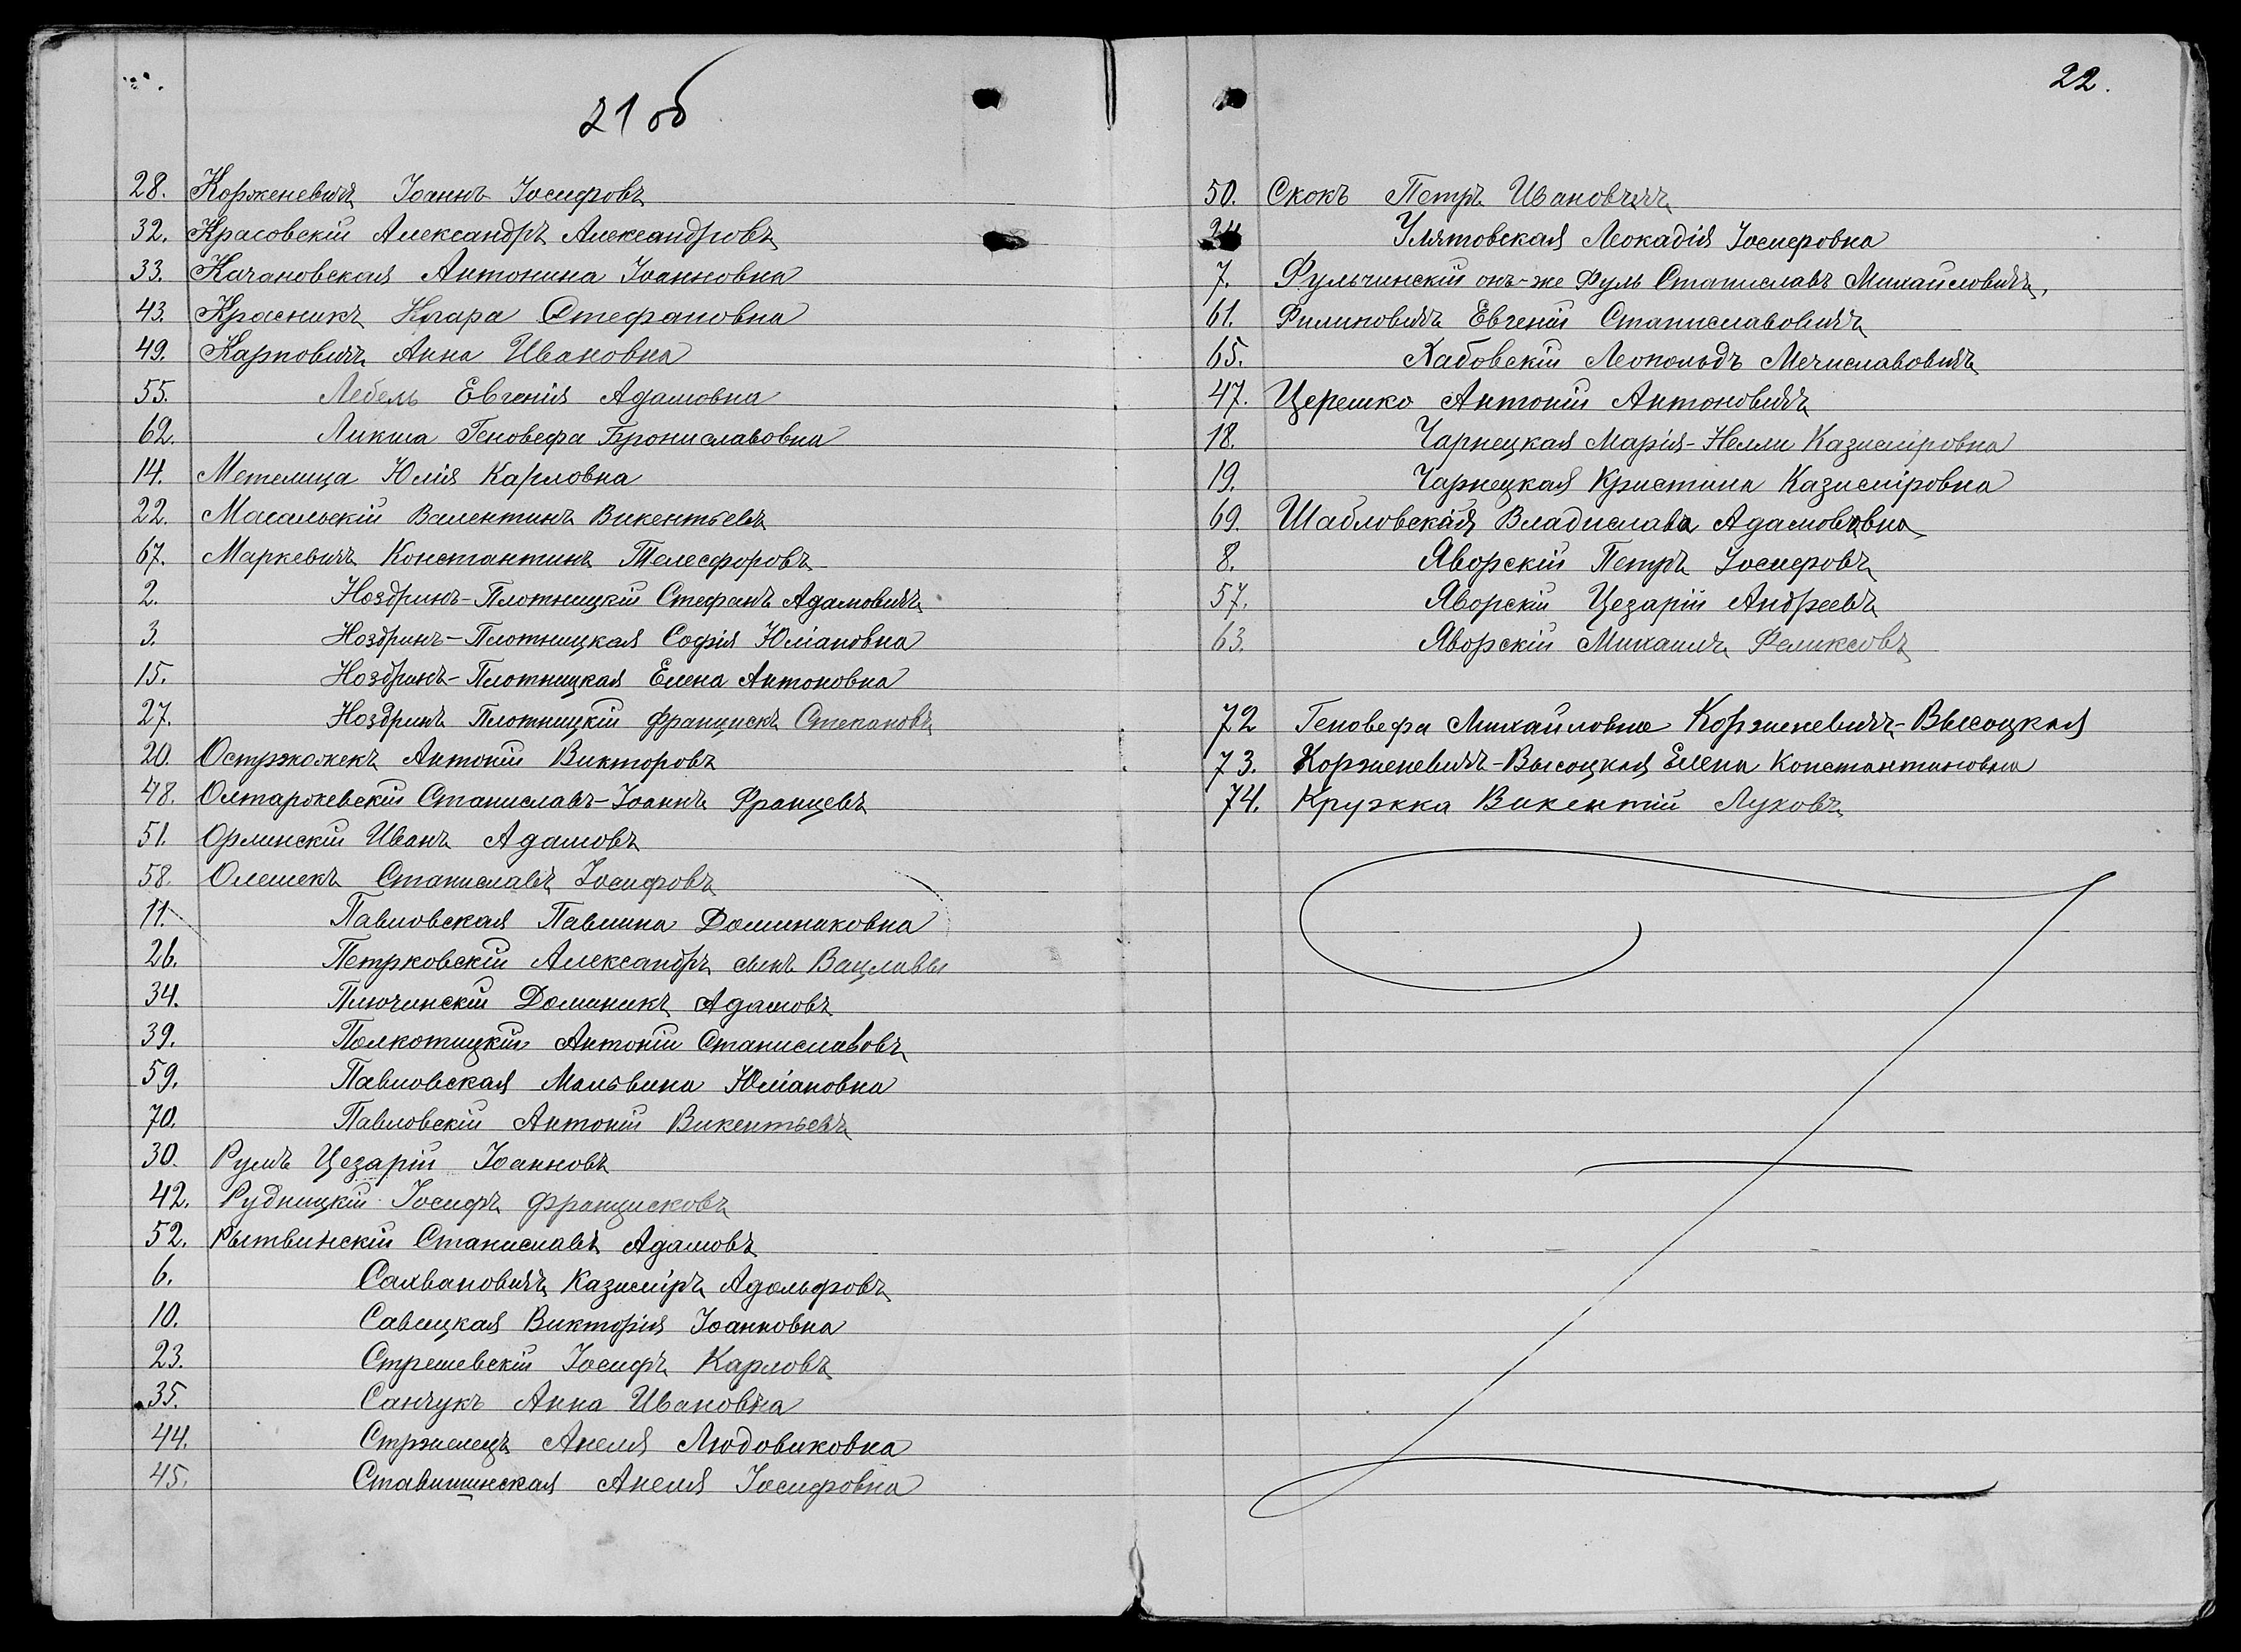 21 об
28. Корженевичъ Іоаннъ Іосифовъ
32. Красовскій Александръ Александровъ
33. Качановская Антонина Іоанновна
43. Красникъ Клара Стефановна
49. Карповичъ Анна Ивановна
55. Лебель Евгенія Адамовна
62. Ликша Геновефа Брониславовна
14. Метелица Юлія Карловна
22. Масальскій Валентинъ Викентьевъ
67. Маркевичъ Константинъ Телесфоровъ
2. Ноздринъ-Плотницкій Стефанъ Адамовичъ
3. Ноздринъ-Плотницкая Софія Юліановна
15. Ноздринъ-Плотницкая Елена Антоновна
27. Ноздринъ Плотницкій Францискъ Степановъ
20. Остржожекъ Антоній Викторовъ
48. Олтаржевскій Станиславъ-Іоаннъ Францевъ
51. Орлинскій Иванъ Адамовъ
58. Олешекъ Станиславъ Іосифовъ
11. Павловская Павлина Доминиковна
26. Петрковскій Александръ сынъ Вацлавы
34. Плючинскій Доминикъ Адамовъ
39. Полкотицкій Антоній Станиславовъ
59. Павловская Мальвина Юліановна
70. Павловскій Антоній Викентьевъ
30. Румъ Цезарій Іоанновъ
42. Рудницкій Іосифъ Францисковъ
52. Рытвинскій Станиславъ Адамовъ
6. Сахвановичъ Казиміръ Адольфовъ
10. Савицкая Викторія Іоанновна
23. Стрешевскій Іосифъ Карловъ
35. Санчукъ Анна Ивановна
44. Стржелецъ Анеля Людовиковна
45. Ставишинская Анеля Іосифовна
22.
50. Скокъ Петръ Ивановичъ
Улятовская Леокадія Іосифовна
7. Фульчинскій онъ-же Фуль Станиславъ Михайловичъ.
61. Филиповичъ Евгеній Станиславовичъ
65. Хабовскій Леопольдъ Мечиславовичъ
47. Церешко Антоній Антоновичъ
18. Чарнецкая Марія-Нелли Казиміровна
19. Чарнецкая Кристина Казиміровна
69. Шабловская Владислава Адамовна
8. Яворскій Петръ Іосифовъ
57. Яворскій Цезарій Андреевъ
63. Яворскій Михаилъ Феликсовъ
72 Геновефа Михайловна Корженевичъ-Высоцкая
73. Корженевичъ-Высоцкая Елена Константиновна
74. Кружка Викентій Луховъ